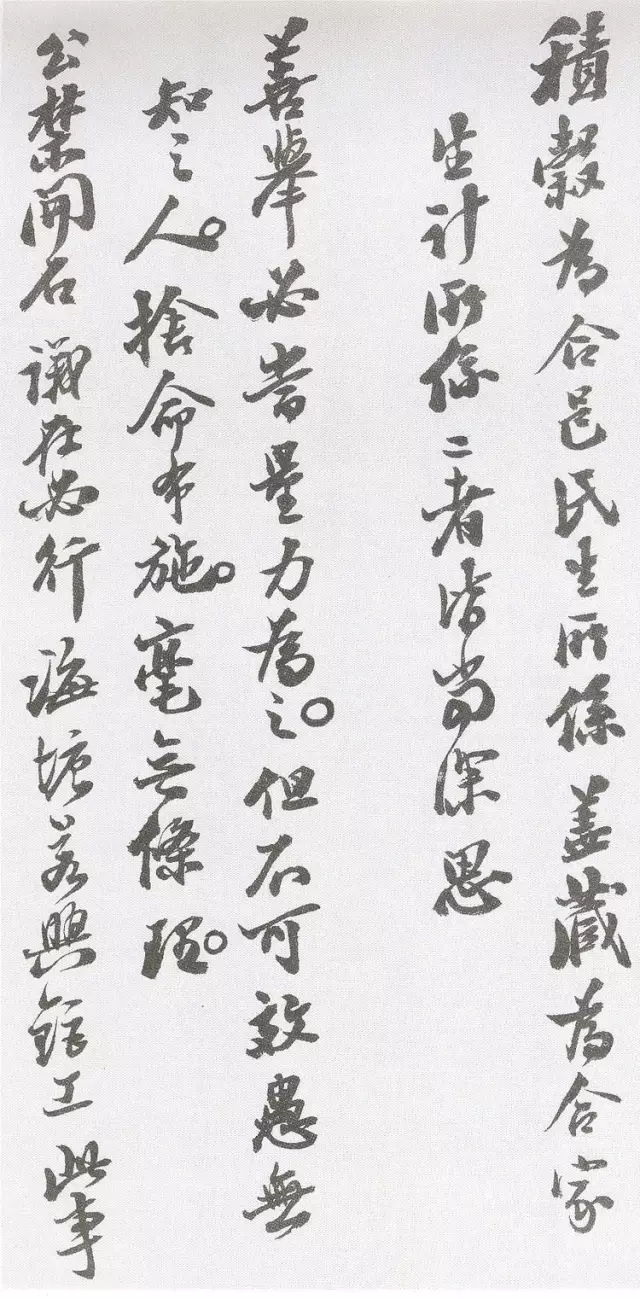 積穀為合邑民生所係蓋藏為合家
生計所係二者皆當深思
善舉必當量力為之。但不可效愚無
知之人。捨命布施。毫無條理。
公禁開石議在必行海塘若興鉅工此事